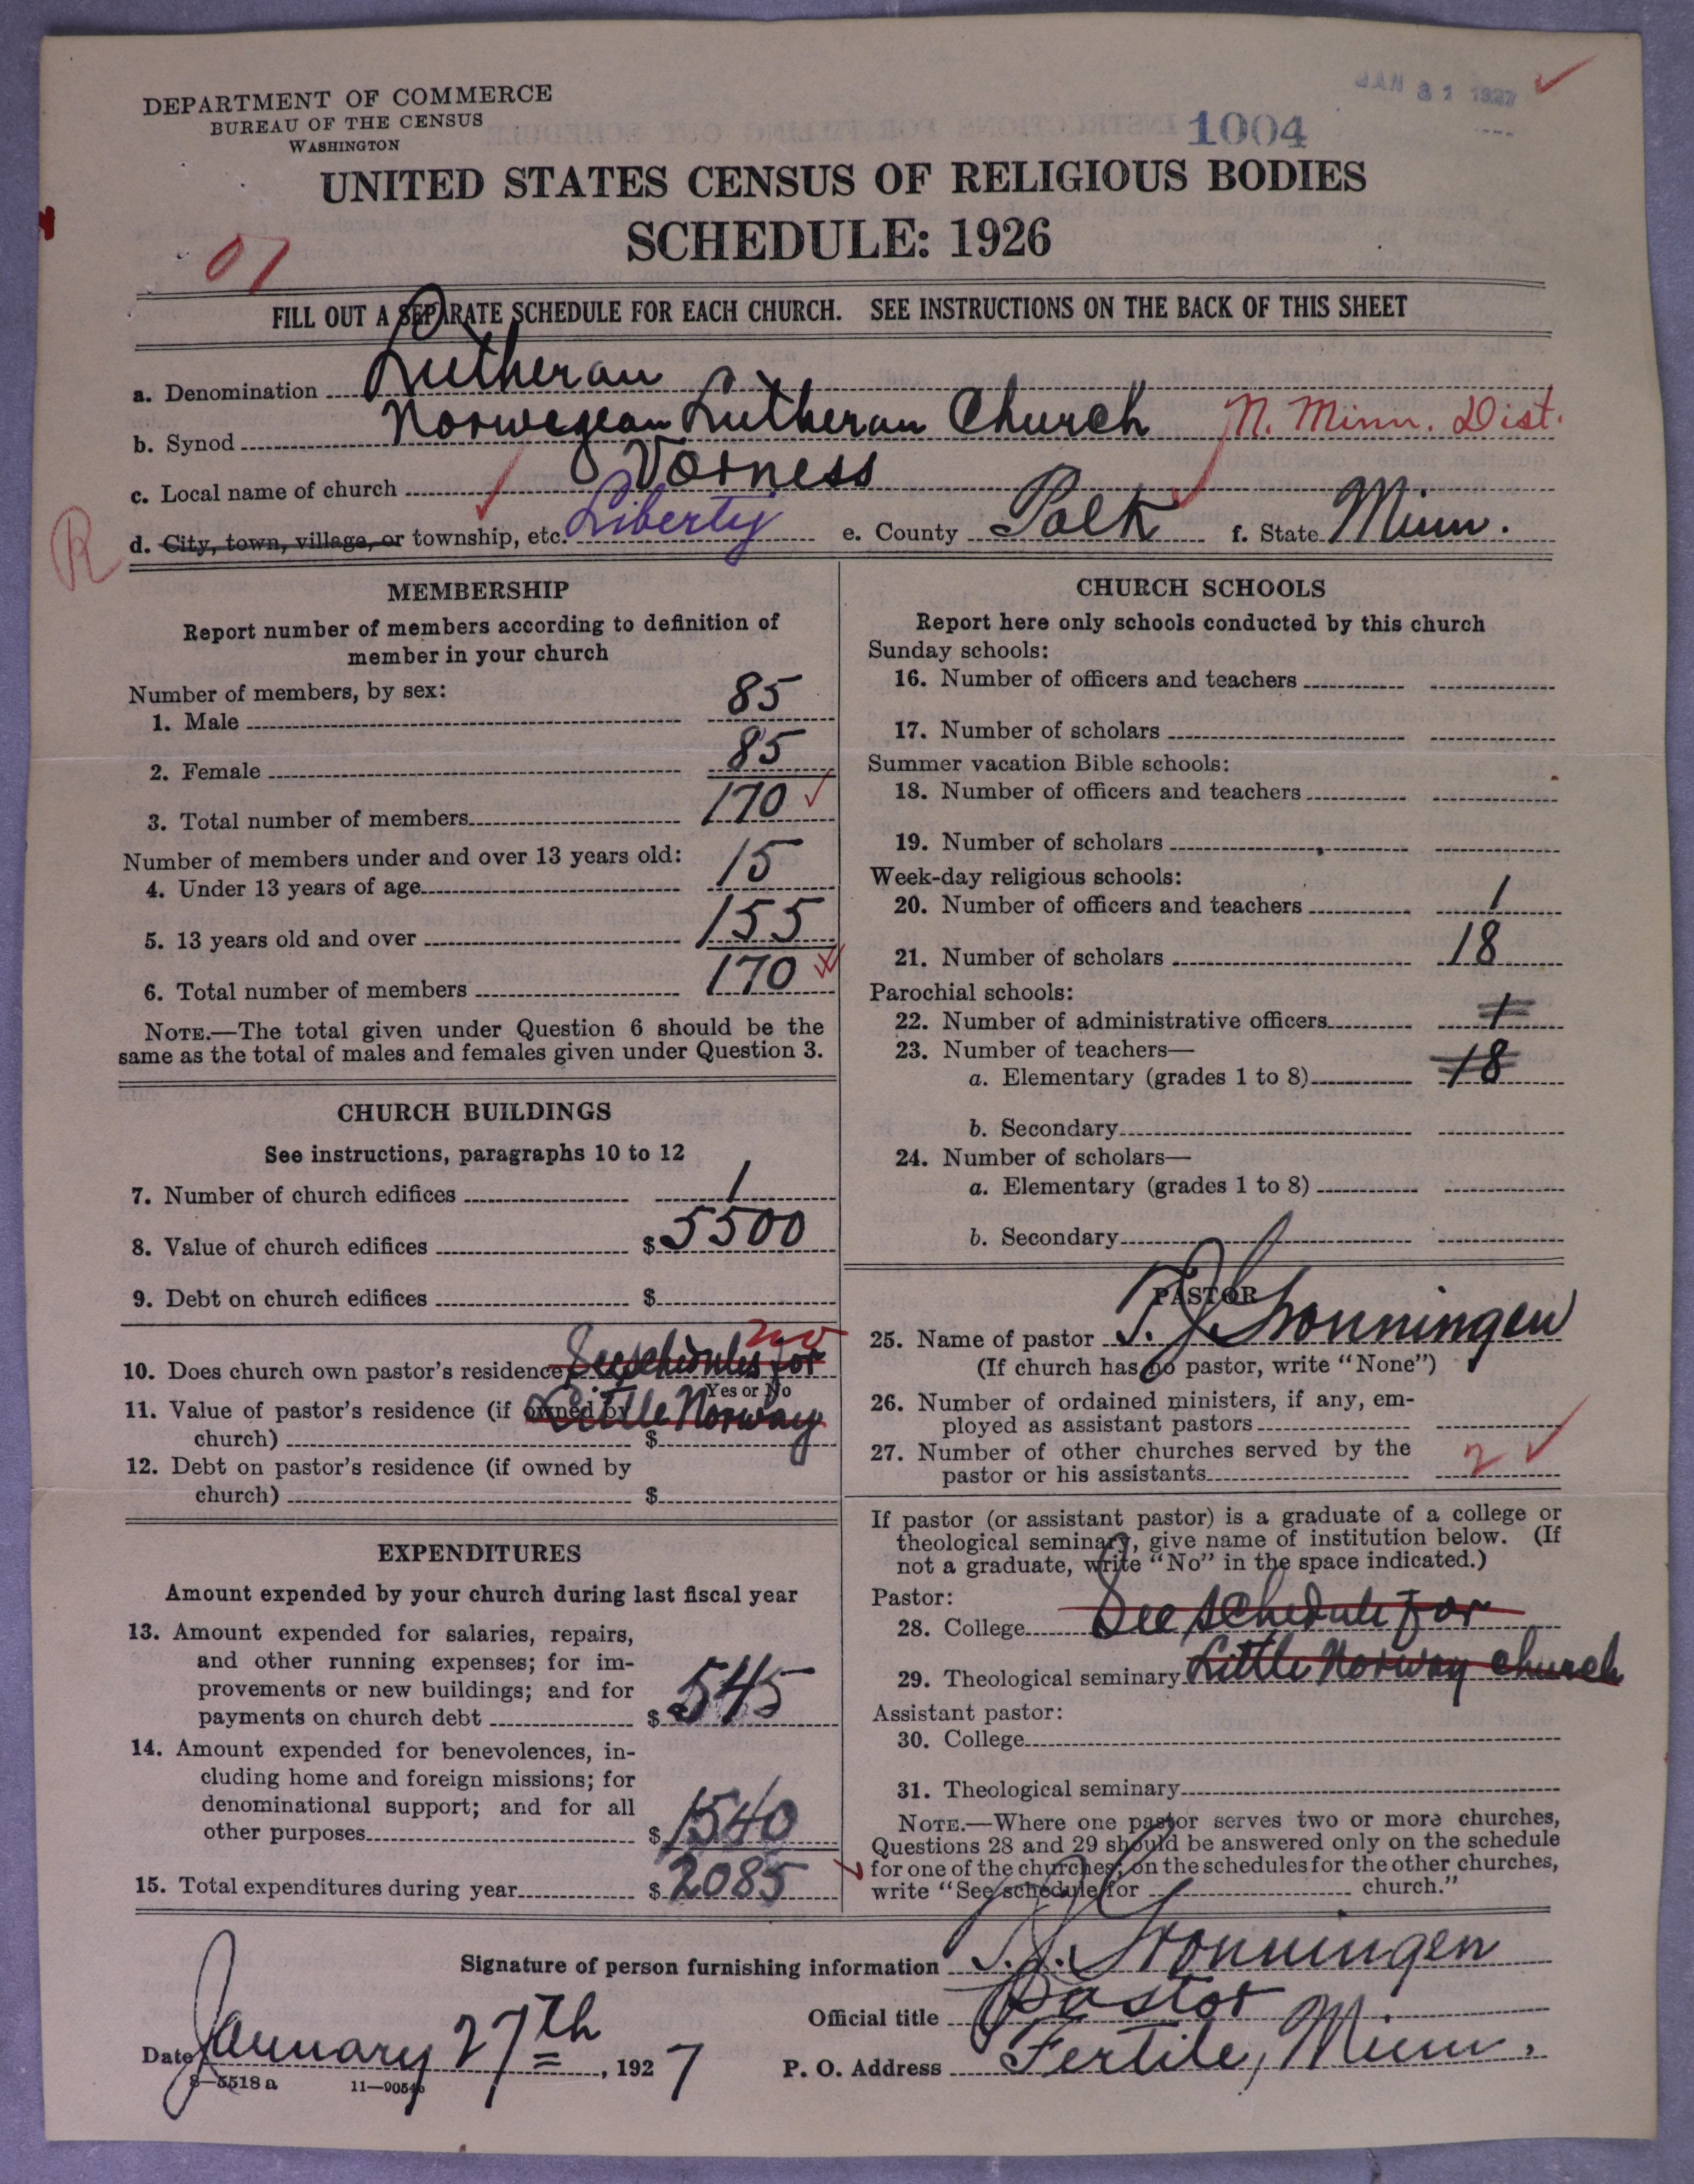 DEPARTMENT OF COMMERCE
BUREAU OF THE CENSUS
WASHINGTON
JAN 31 1927
1004
UNITED STATES CENSUS OF RELIGIOUS BODIES
SCHEDULE: 1926
01
FILL OUT A SEPARATE SCHEDULE FOR EACH CHURCH. SEE INSTRUCTIONS ON THE BACK OF THIS SHEET
a. Denomination Lutheran
b. Synod Norwegean Lutheran Church N. Minn. Dist.
c. Local name of church Varness
R
d. City, town, village, or township, etc. Liberty e. County Polk f. State Minn.
MEMBERSHIP
Report number of members according to definition of
member in your church
Number of members, by sex:
1. Male 85
2. Female 85
3. Total number of members 170
Number of members under and over 13 years old:
4. Under 13 years of age 15
5. 13 years old and over 155
6. Total number of members 170
NOTE.—The total given under Question 6 should be the
same as the total of males and females given under Question 3.
CHURCH BUILDINGS
See instructions, paragraphs 10 to 12
7. Number of church edifices 1
8. Value of church edifices $ 5500
9. Debt on church edifices $
10. Does church own pastor's residence See schedules for no
Yes or No
11. Value of pastor's residence (if owned by Little Norway
church) $
12. Debt on pastor's residence (if owned by
church) $
EXPENDITURES
Amount expended by your church during last fiscal year
13. Amount expended for salaries, repairs,
and other running expenses; for im-
provements or new buildings; and for
payments on church debt $ 545
14. Amount expended for benevolences, in-
cluding home and foreign missions; for
denominational support; and for all
other purposes $ 1540
15. Total expenditures during year $ 2085
CHURCH SCHOOLS
Report here only schools conducted by this church
Sunday schools:
16. Number of officers and teachers
17. Number of scholars
Summer vacation Bible schools:
18. Number of officers and teachers
19. Number of scholars
Week-day religious schools:
20. Number of officers and teachers 1
21. Number of scholars 18
Parochial schools:
22. Number of administrative officers 1
23. Number of teachers—
a. Elementary (grades 1 to 8) 18
b. Secondary
24. Number of scholars—
a. Elementary (grades 1 to 8)
b. Secondary
PASTOR
25. Name of pastor T. J. Stonningen
(If church has no pastor, write "None")
26. Number of ordained ministers, if any, em-
ployed as assistant pastors
27. Number of other churches served by the
pastor or his assistants 2
If pastor (or assistant pastor) is a graduate of a college or
theological seminary, give name of institution below. (If
not a graduate, write "No" in the space indicated.)
Pastor:
28. College See schedule for
29. Theological seminary Little Norway church
Assistant pastor:
30. College
31. Theological seminary
NOTE.—Where one pastor serves two or more churches,
Questions 28 and 29 should be answered only on the schedule
for one of the churches; on the schedules for the other churches,
write "See schedule for church."
Signature of person furnishing information T. J. Stonningen
Official title Pastor
Date January 27th, 1927 P. O. Address Fertile, Minn.
8—5518 a 11—9054